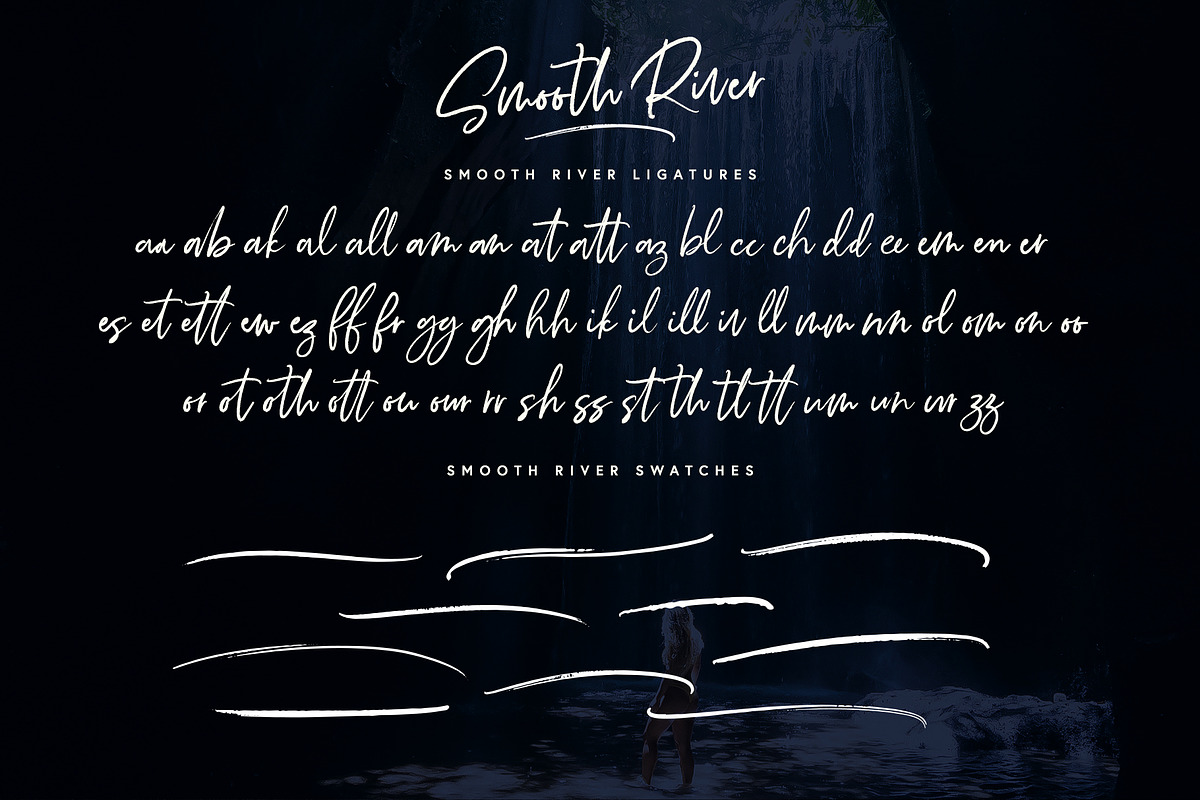 Smooth River
SMOOTH RIVER LIGATURES
aa ab ak al all am an at att az bl cc ch dd ee em en er
es et ett ew ez ff fr gg gh hh ik il ill iv ll mm nn ol om on oo
or ot oth ott ou our rr sh ss st th tl tt um un ur zz
SMOOTH RIVER SWATCHES